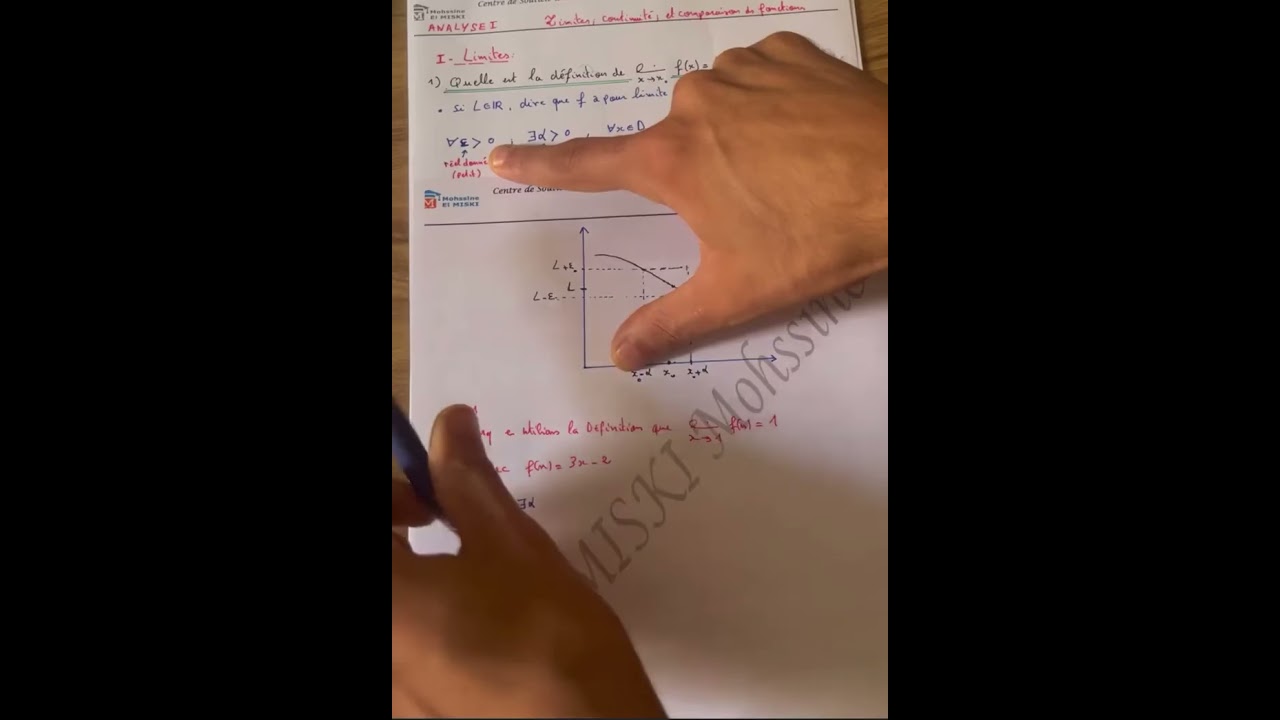 Mohssine
El MISKI
Centre de
ANALYSE I
Limites, continuité, et comparaison de fonctions
I - Limites:
1) Quelle est la définition de lim f(x) =
x→x₀
• Si L∈ℝ, dire que f a pour limite
∀ε > 0 , ∃α > 0 , ∀x ∈ D
réel donné
(petit)
Mohssine
El MISKI
Centre de
L+ε
L
L-ε
x₀-α x₀ x₀+α
e utilisons la Définition que lim f(x) = 1
x→1
f(x) = 3x - 2
∃α
MISKI Mohssine